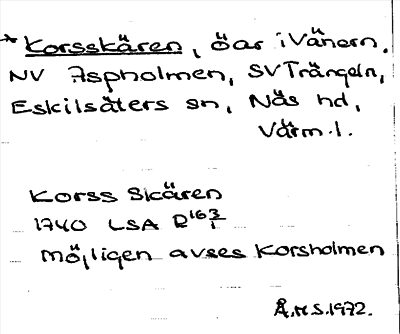 * Korsskären, öar i Vänern,
NV Aspholmen, SV Trängeln,
Eskilsäters sn, Näs hd,
Värm. l.
Korss Skären
1740 LSA R 163/1
möjligen avses Korsholmen
Å.M.S. 1972.